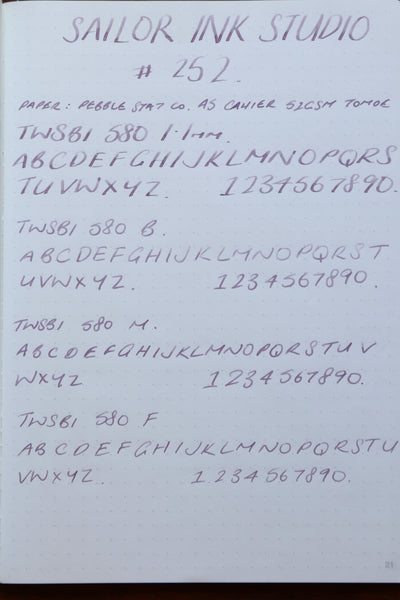 SAILOR INK STUDIO
# 252.
PAPER: PEBBLE STAT CO. A5 CAHIER 52GSM TOMOE
TWSBI 580 1.1mm.
ABCDEFGHIJKLMNOPQRS
TUVWXYZ. 1234567890.
TWSBI 580 B.
ABCDEFGHIJKLMNOPQRST
UVWXYZ. 1234567890.
TWSBI 580 M.
ABCDEFGHIJKLMNOPQRSTUV
WXYZ 1234567890.
TWSBI 580 F
ABCDEFGHIJKLMNOPQRSTU
VWXYZ. 1234567890.
21